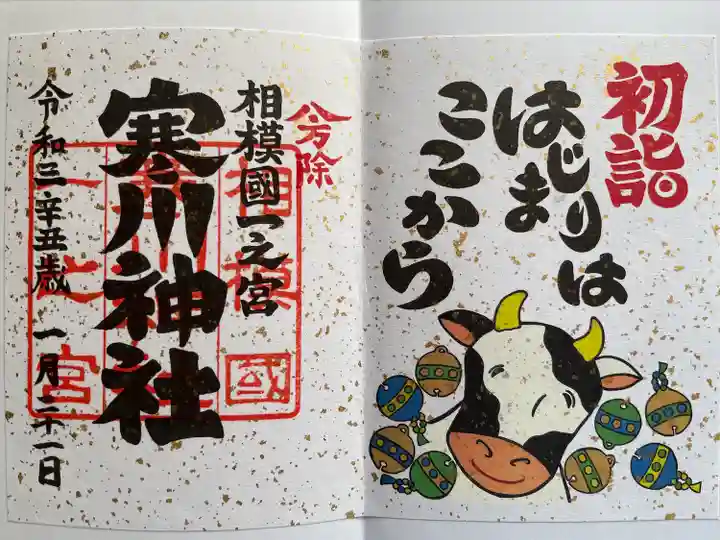 初詣
はじまりは
ここから
八方除
相模國一之宮
寒川神社
令和三辛丑歳 一月二十一日
相模國
一之宮